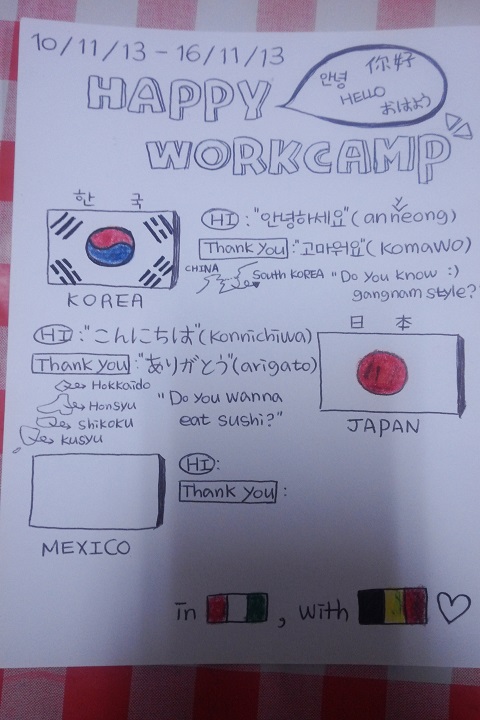 10/11/13 - 16/11/13
안녕 你好
HELLO
おはよう
HAPPY
WORKCAMP
한 국
HI : "안녕하세요" (anneong)
Thank you : "고마워요" (KomaWO)
CHINA
South KOREA
"Do you know :)
gangnam style?
KOREA
HI : "こんにちは" (Konnichiwa)
Thank you : "ありがとう" (arigato)
Hokkaido
Honsyu
shikoku
kusyu
"Do you wanna
eat sushi?"
日 本
JAPAN
HI :
Thank you :
MEXICO
in , with